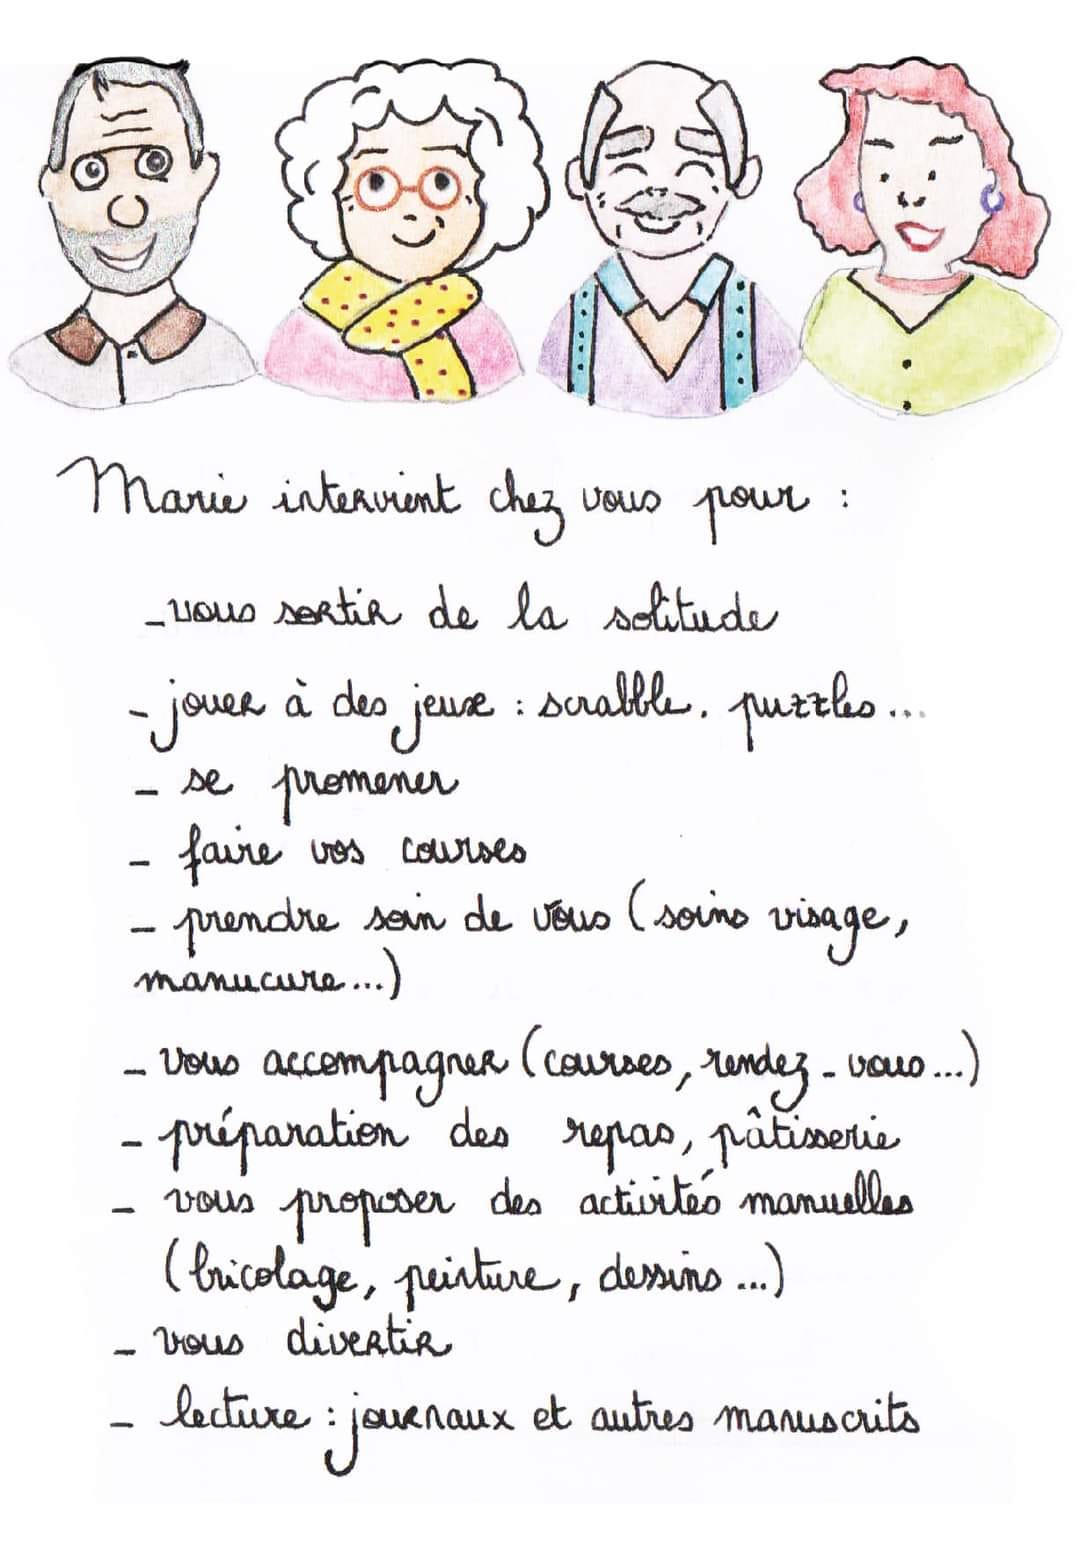 Marie intervient chez vous pour :
- vous sortir de la solitude
- jouer à des jeux : scrabble. puzzles...
- se promener
- faire vos courses
- prendre soin de vous (soins visage,
manucure...)
- vous accompagner (courses, rendez-vous...)
- préparation des repas, pâtisserie
- vous proposer des activités manuelles
(bricolage, peinture, dessins...)
- vous divertir
- lecture : journaux et autres manuscrits